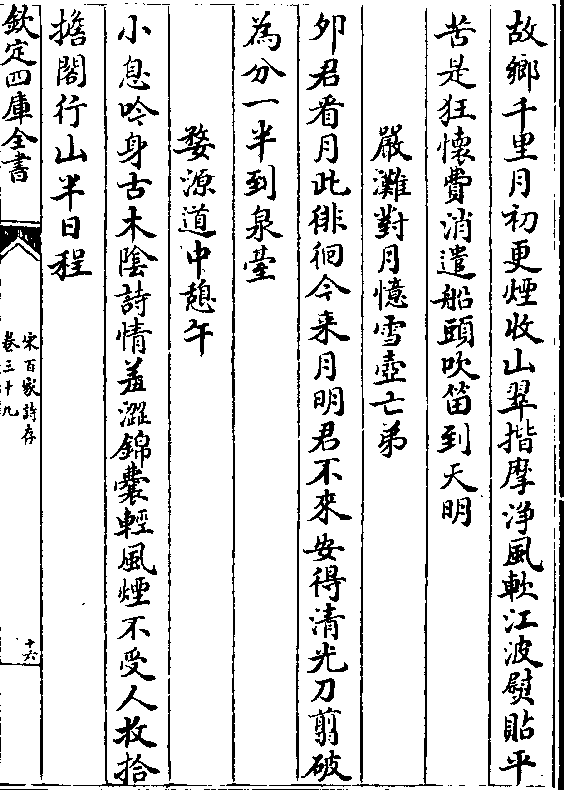 故鄉千里月初更煙收山翠揩摩淨風軟江波熨貼平
苦是狂懷費消遣船頭吹笛到天明
嚴灘對月憶雪壺亡弟
夘君看月此徘徊今来月明君不來安得清光刀剪破
為分一半到泉臺
婺源道中憩午
小息吟身古木陰詩情羞澀錦囊輕風煙不受人收拾
擔閣行山半日程
欽定四庫全書
宋百家詩存
卷三十九
十六